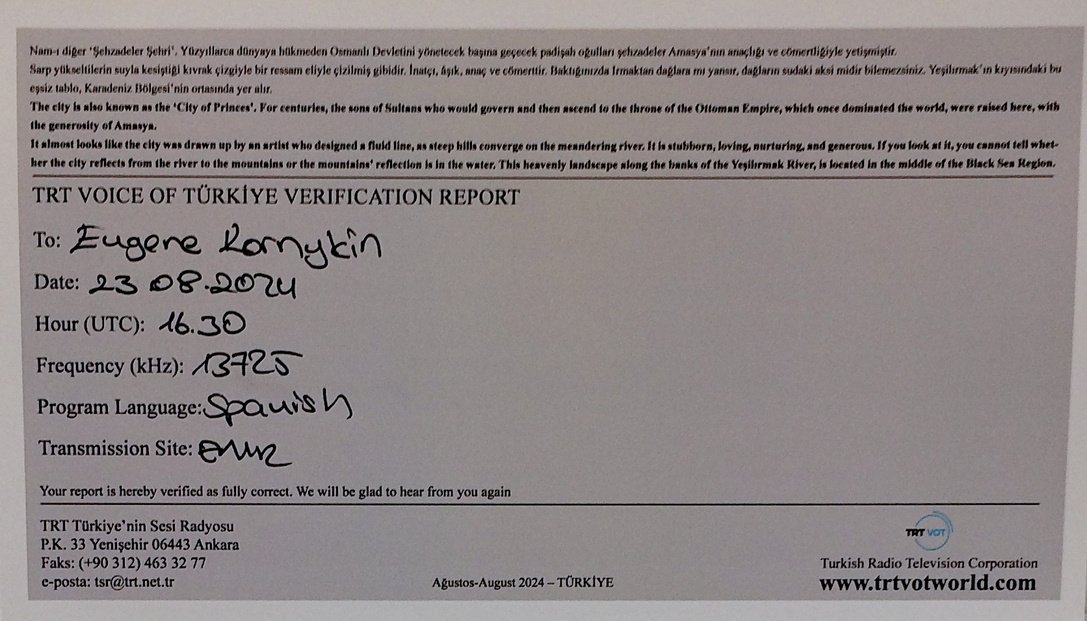 Nam-ı diğer 'Şehzadeler Şehri'. Yüzyıllarca dünyaya hükmeden Osmanlı Devletini yönetecek başına geçecek padişah oğulları şehzadeler Amasya'nın anaçlığı ve cömertliğiyle yetişmiştir.
Sarp yükseltilerin suyla kesiştiği kıvrak çizgiyle bir ressam eliyle çizilmiş gibidir. İnatçı, âşık, anaç ve cömerttir. Baktığınızda Irmaktan dağlara mı yansır, dağların sudaki aksi midir bilemezsiniz. Yeşilırmak'ın kıyısındaki bu
eşsiz tablo, Karadeniz Bölgesi'nin ortasında yer alır.
The city is also known as the 'City of Princes'. For centuries, the sons of Sultans who would govern and then ascend to the throne of the Ottoman Empire, which once dominated the world, were raised here, with
the generosity of Amasya.
It almost looks like the city was drawn up by an artist who designed a fluid line, as steep hills converge on the meandering river. It is stubborn, loving, nurturing, and generous. If you look at it, you cannot tell whet-
her the city reflects from the river to the mountains or the mountains' reflection is in the water. This heavenly landscape along the banks of the Yeşilırmak River, is located in the middle of the Black Sea Region.
TRT VOICE OF TÜRKİYE VERIFICATION REPORT
To: Eugene Kornykin
Date: 23 08.2024
Hour (UTC): 16.30
Frequency (kHz): 13725
Program Language: Spanish
Transmission Site: EMR
Your report is hereby verified as fully correct. We will be glad to hear from you again
TRT Türkiye'nin Sesi Radyosu
P.K. 33 Yenişehir 06443 Ankara
Faks: (+90 312) 463 32 77
e-posta: tsr@trt.net.tr
Ağustos-August 2024 – TÜRKİYE
TRT VOT
Turkish Radio Television Corporation
www.trtvotworld.com